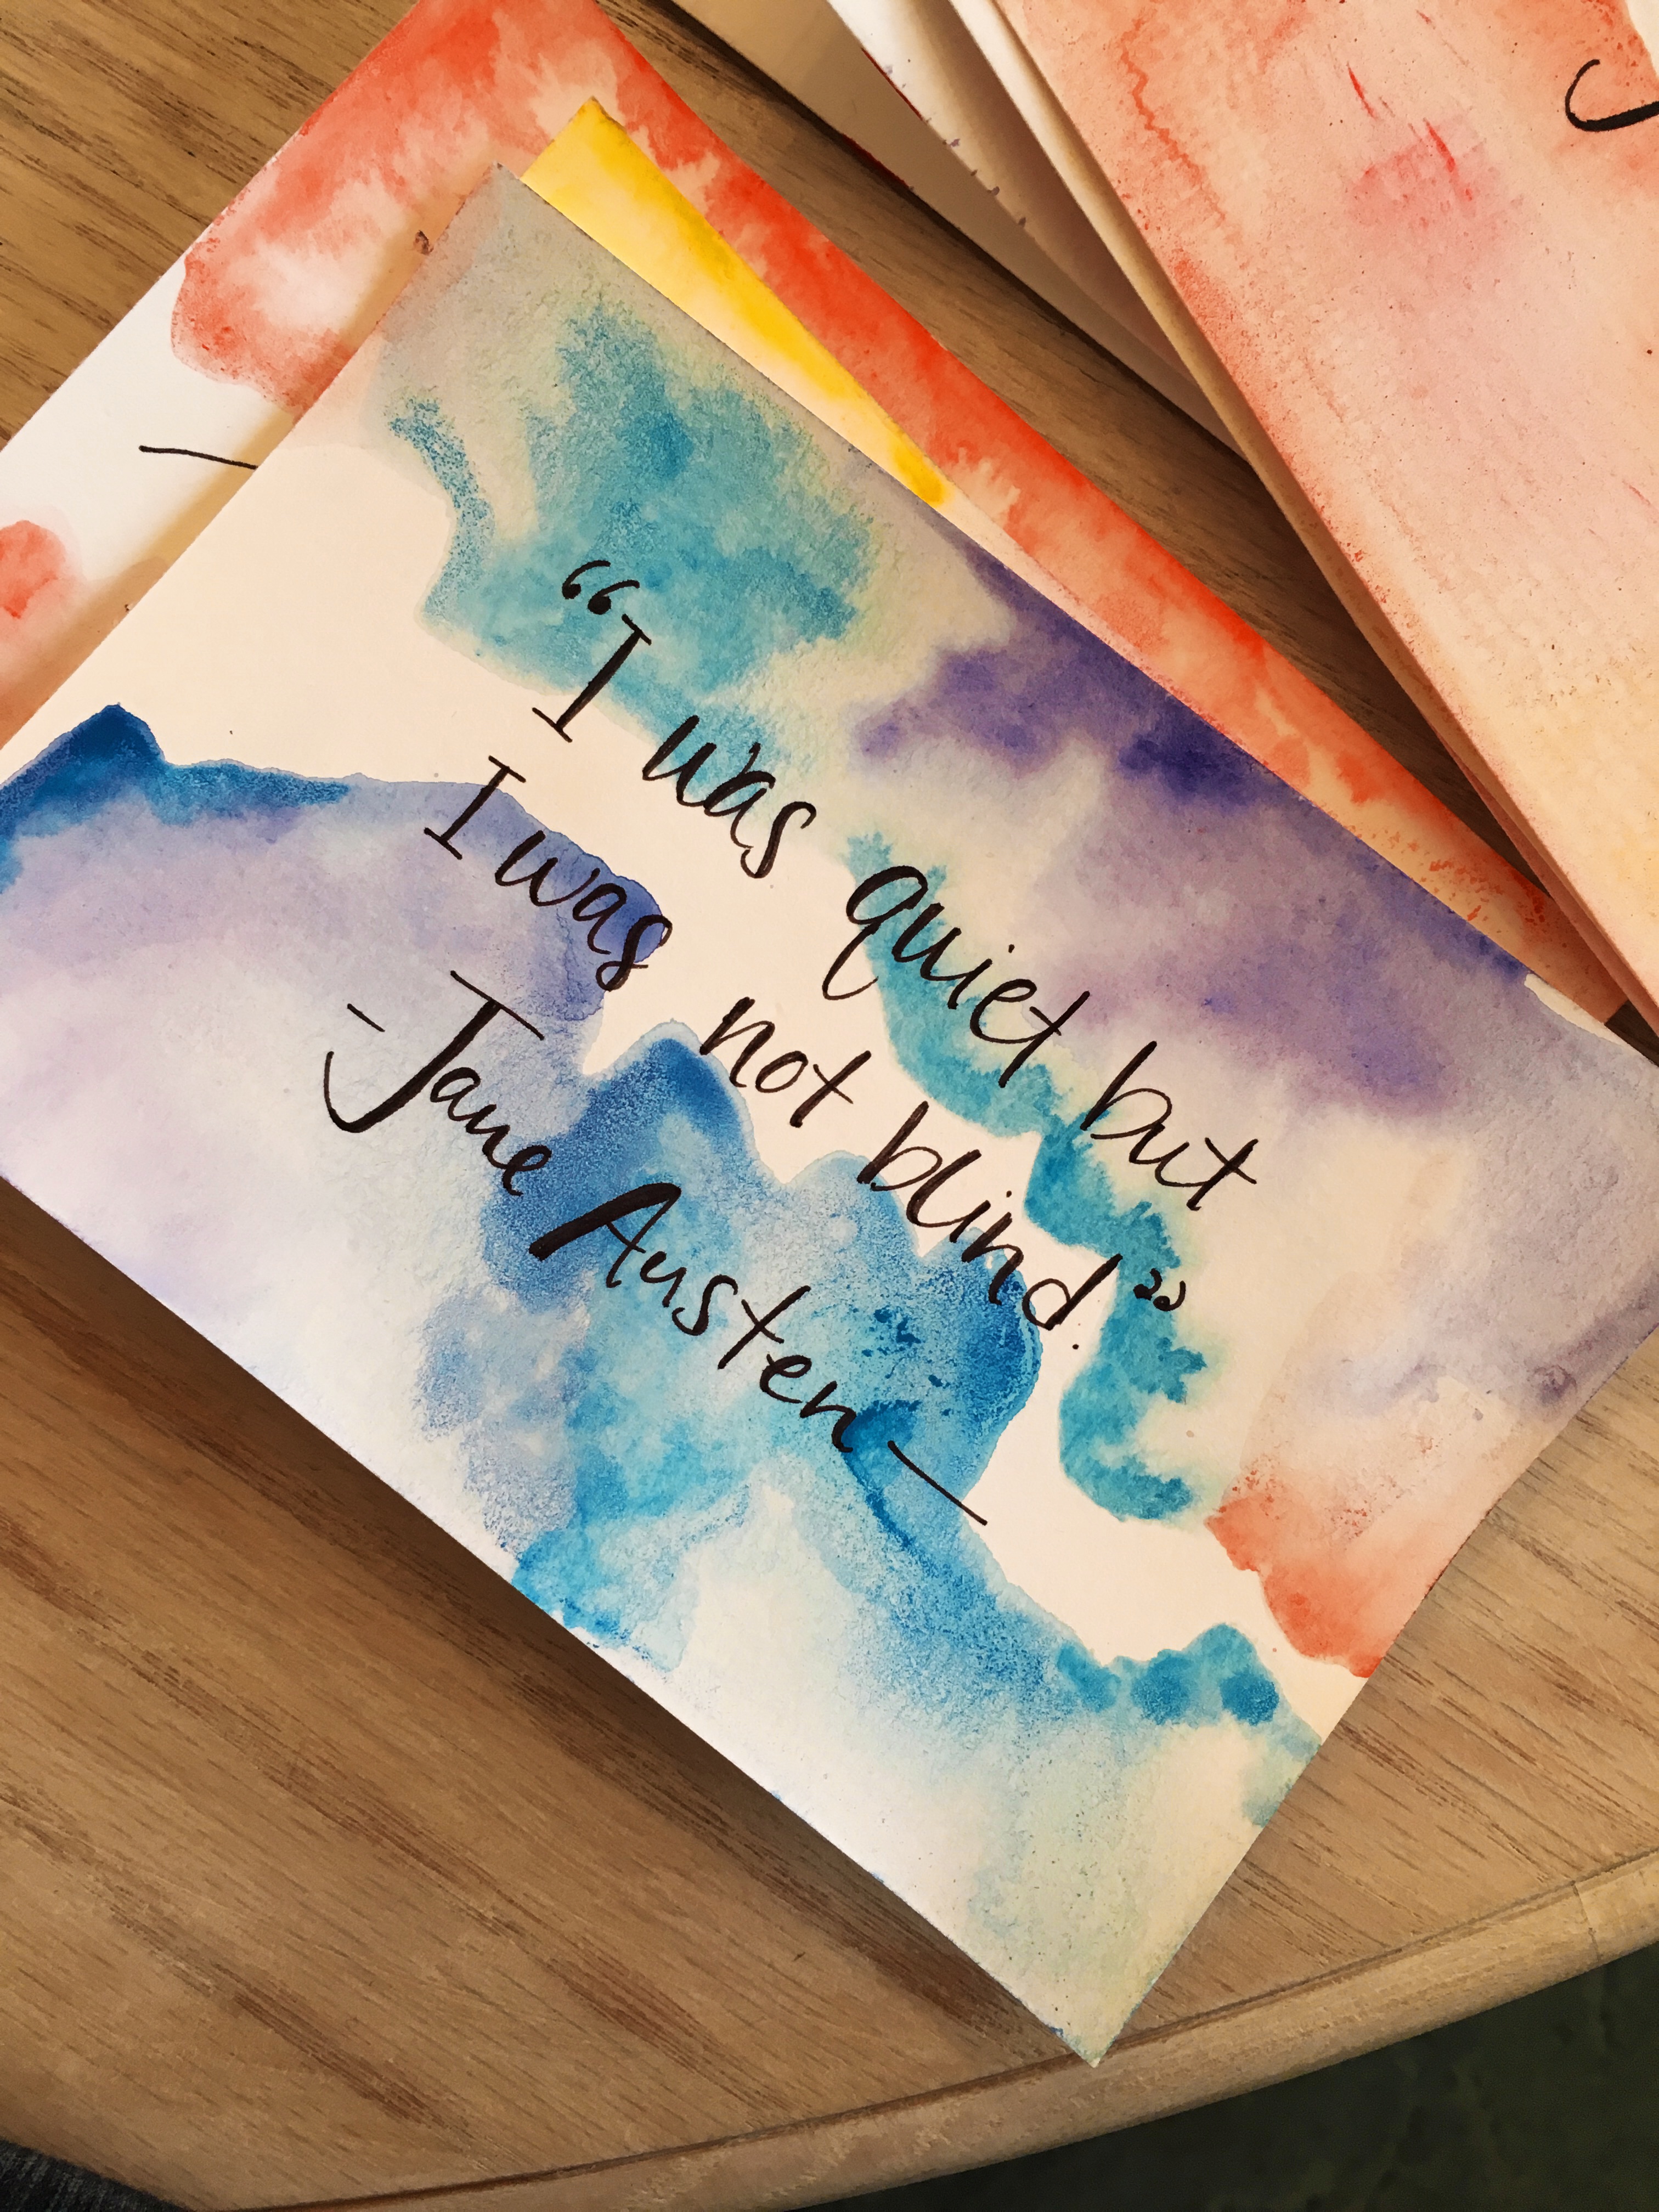 “I was quiet but
I was not blind.”
-Jane Austen-